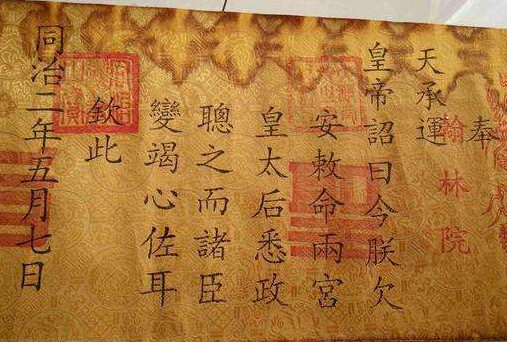 奉
翰林院
天承運
皇帝詔曰今朕欠
安敕命兩宮
皇太后悉政
聰之而諸臣
變竭心佐耳
欽此
同治二年五月七日